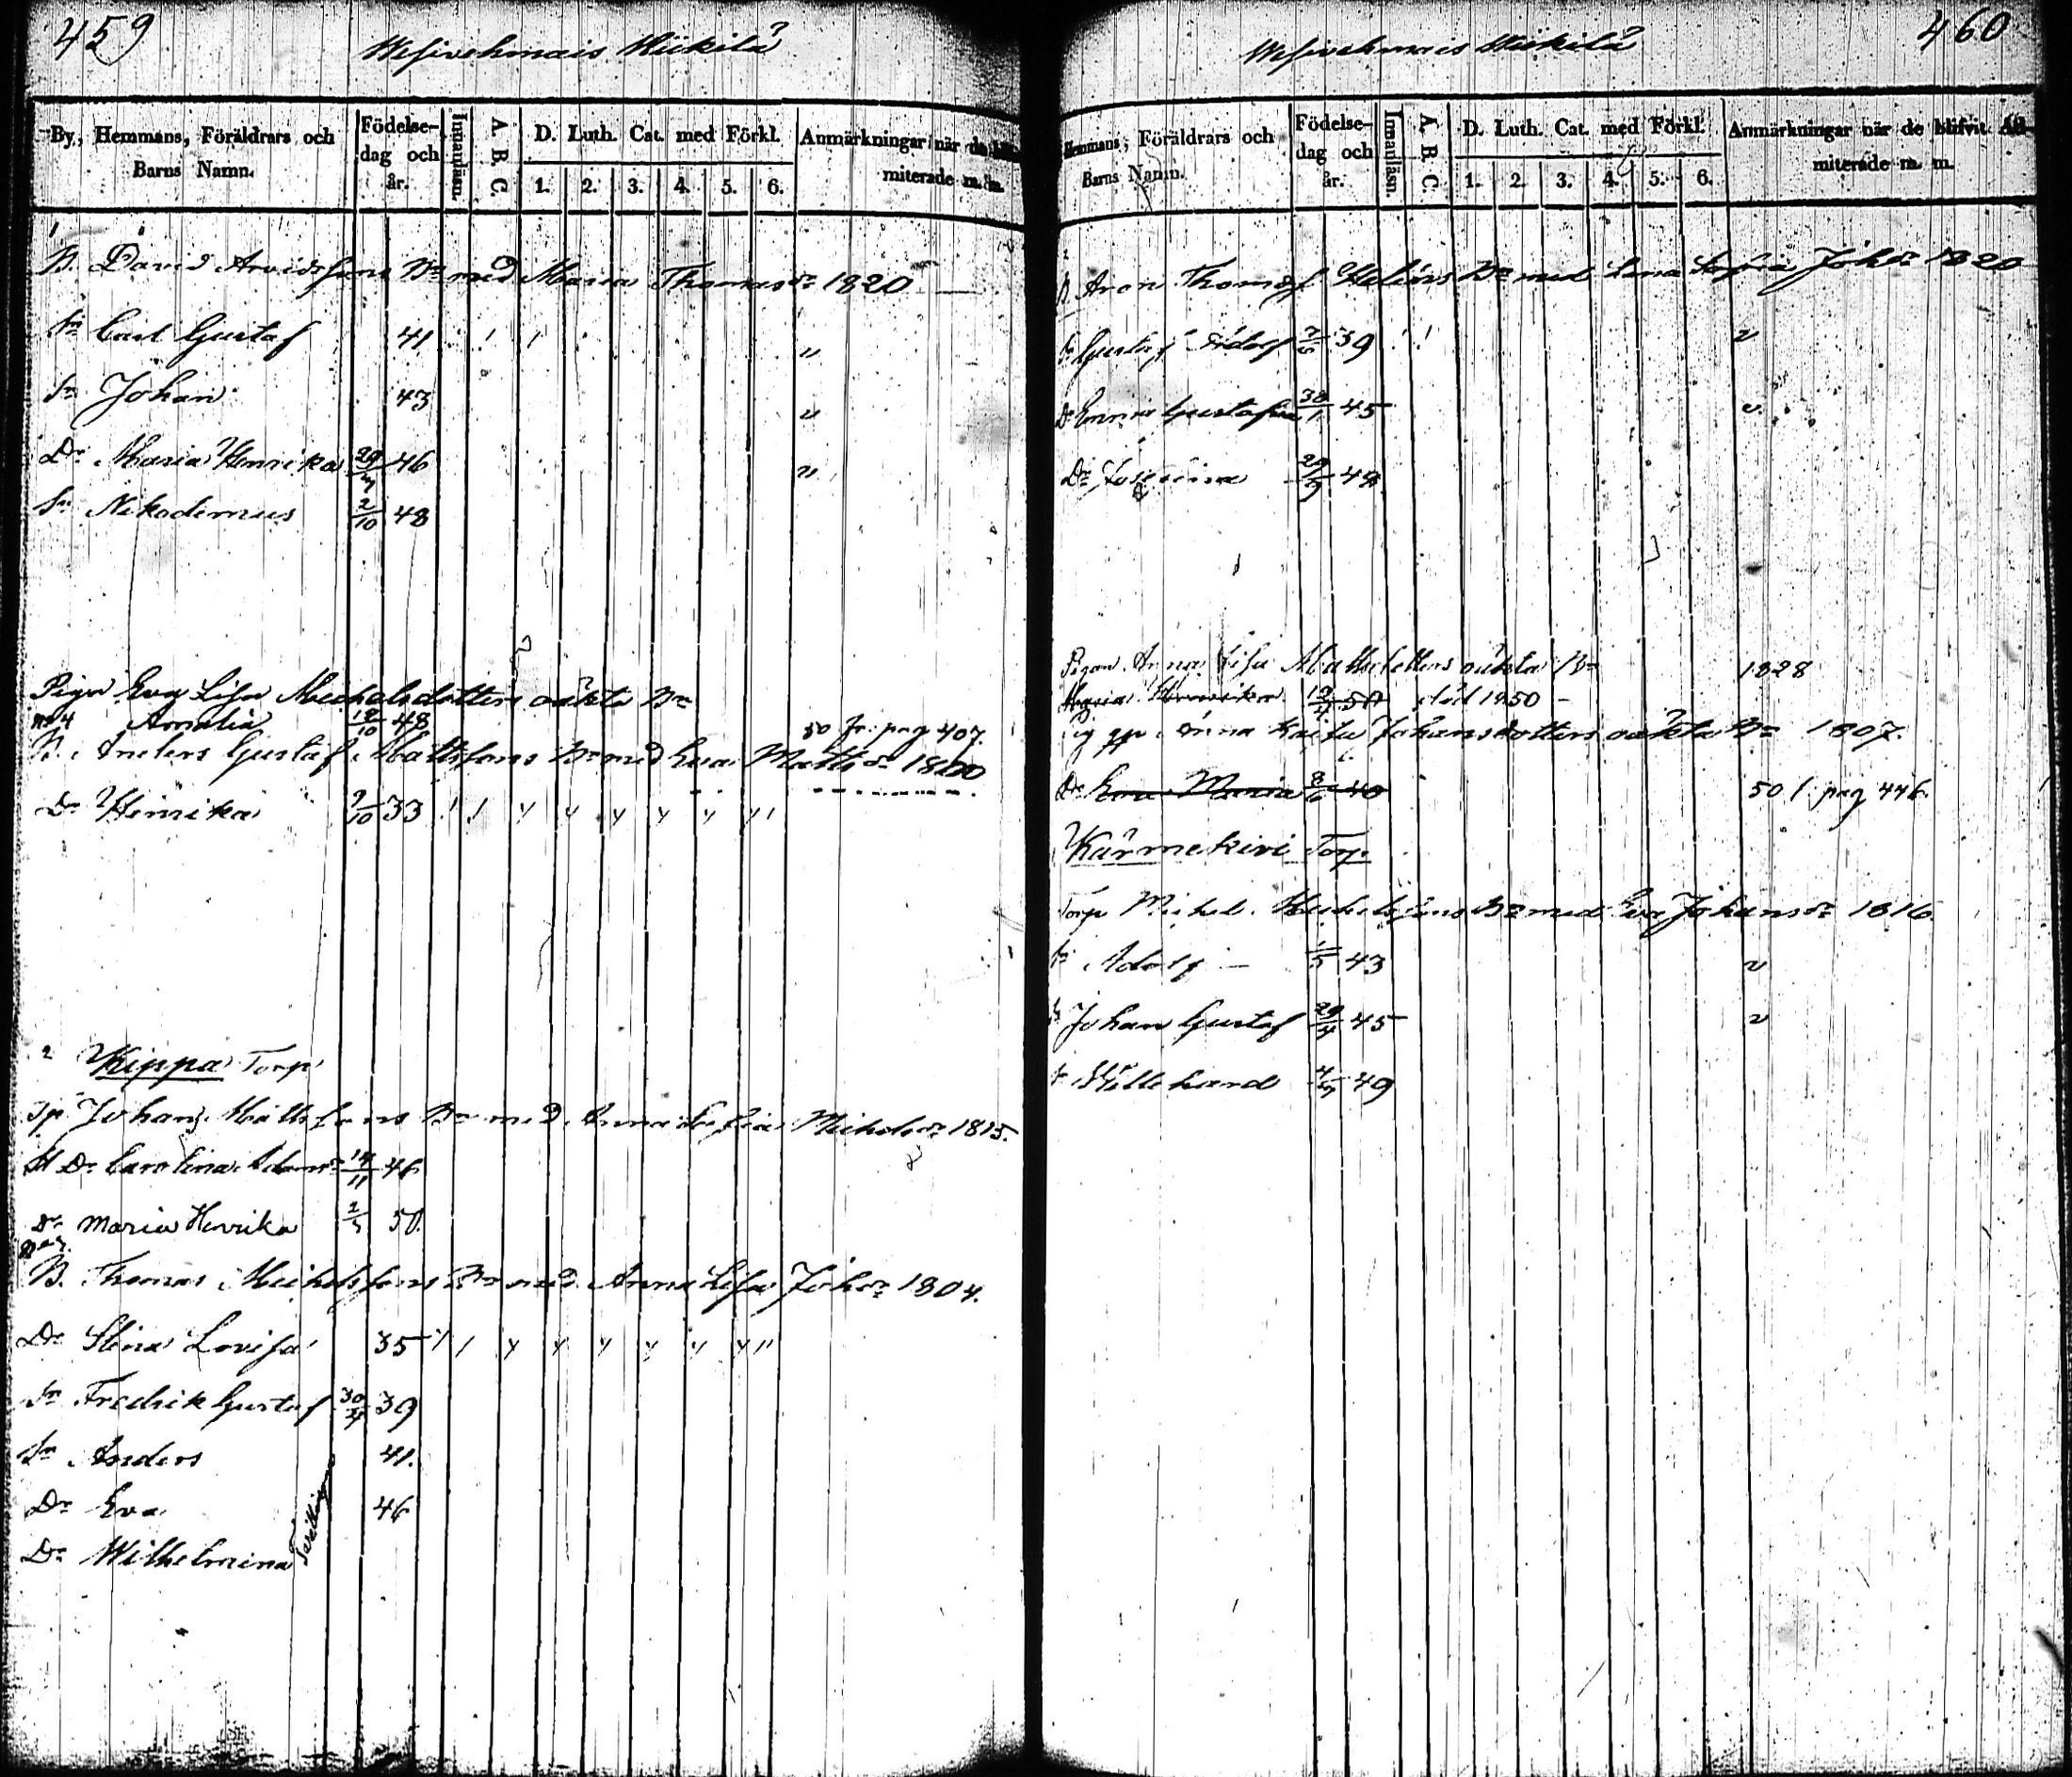 459
Wesivehmais Hiikilä
By, Hemmans, Föräldrars och Barns Namn.
Födelse-dag och år.
Innanläsn.
A. B. C.
D. Luth. Cat. med Förkl.
1. 2. 3. 4. 5. 6.
Anmärkningar när de
miterade m. m.
1
B. David Arvidssons Bn med Maria Thomasdr 1820
Sn Carl Gustaf 41
Sn Johan 43
Dr Maria Henrika 46
Sn Nikodemus 2/10 48
Pigan Eva Lisa Michelsdotters oäkta Bn
Amalia 48 50 fr. pag 407.
B. Anders Gustaf Mattssons Bn med Eva Mattsdr 1800
Dr Henrika 9/10 33
2 Kippa Torp
Tp. Johan Mattssons Bn med Anna Sofia Michelsdr 1815.
Dr Carolina 14/11 46
Dr Maria Henrika 50.
B. Thomas Michelssons Bn med Anna Lisa Johdr 1804.
Dr Stina Lovisa 35
Sn Fredrik Gustaf 39
Sn Anders 41.
Dr Eva 46
Dr Wilhelmina
Tvillingar
460
Wesivehmais Hiikilä
Hemmans, Föräldrars och Barns Namn.
Födelse-dag och år.
Innanläsn.
A. B. C.
D. Luth. Cat. med Förkl.
1. 2. 3. 4. 5. 6.
Anmärkningar när de blifvit Ad-
miterade m. m.
B Aron Thomas Helins Bn med Lena Sofia Johdr 1820
Sn Gustaf 39
Dr Emma Gustafva 45
Dr Josefina 29/9 48
Pigan Anna Lisa oäkta Bn 1828
Maria Henrika 50 död 1850
Anna Kaisa Johansdotters oäkta Bn 1807.
Dr Eva Maria 8/6 40 50 f. pag 446.
Kärmekivi Torp
Torp Michel Michelssons Bn med Eva Johansdr 1816.
Sn Adolf 43
Sn Johan Gustaf 29/4 45
Sn Willehard 49